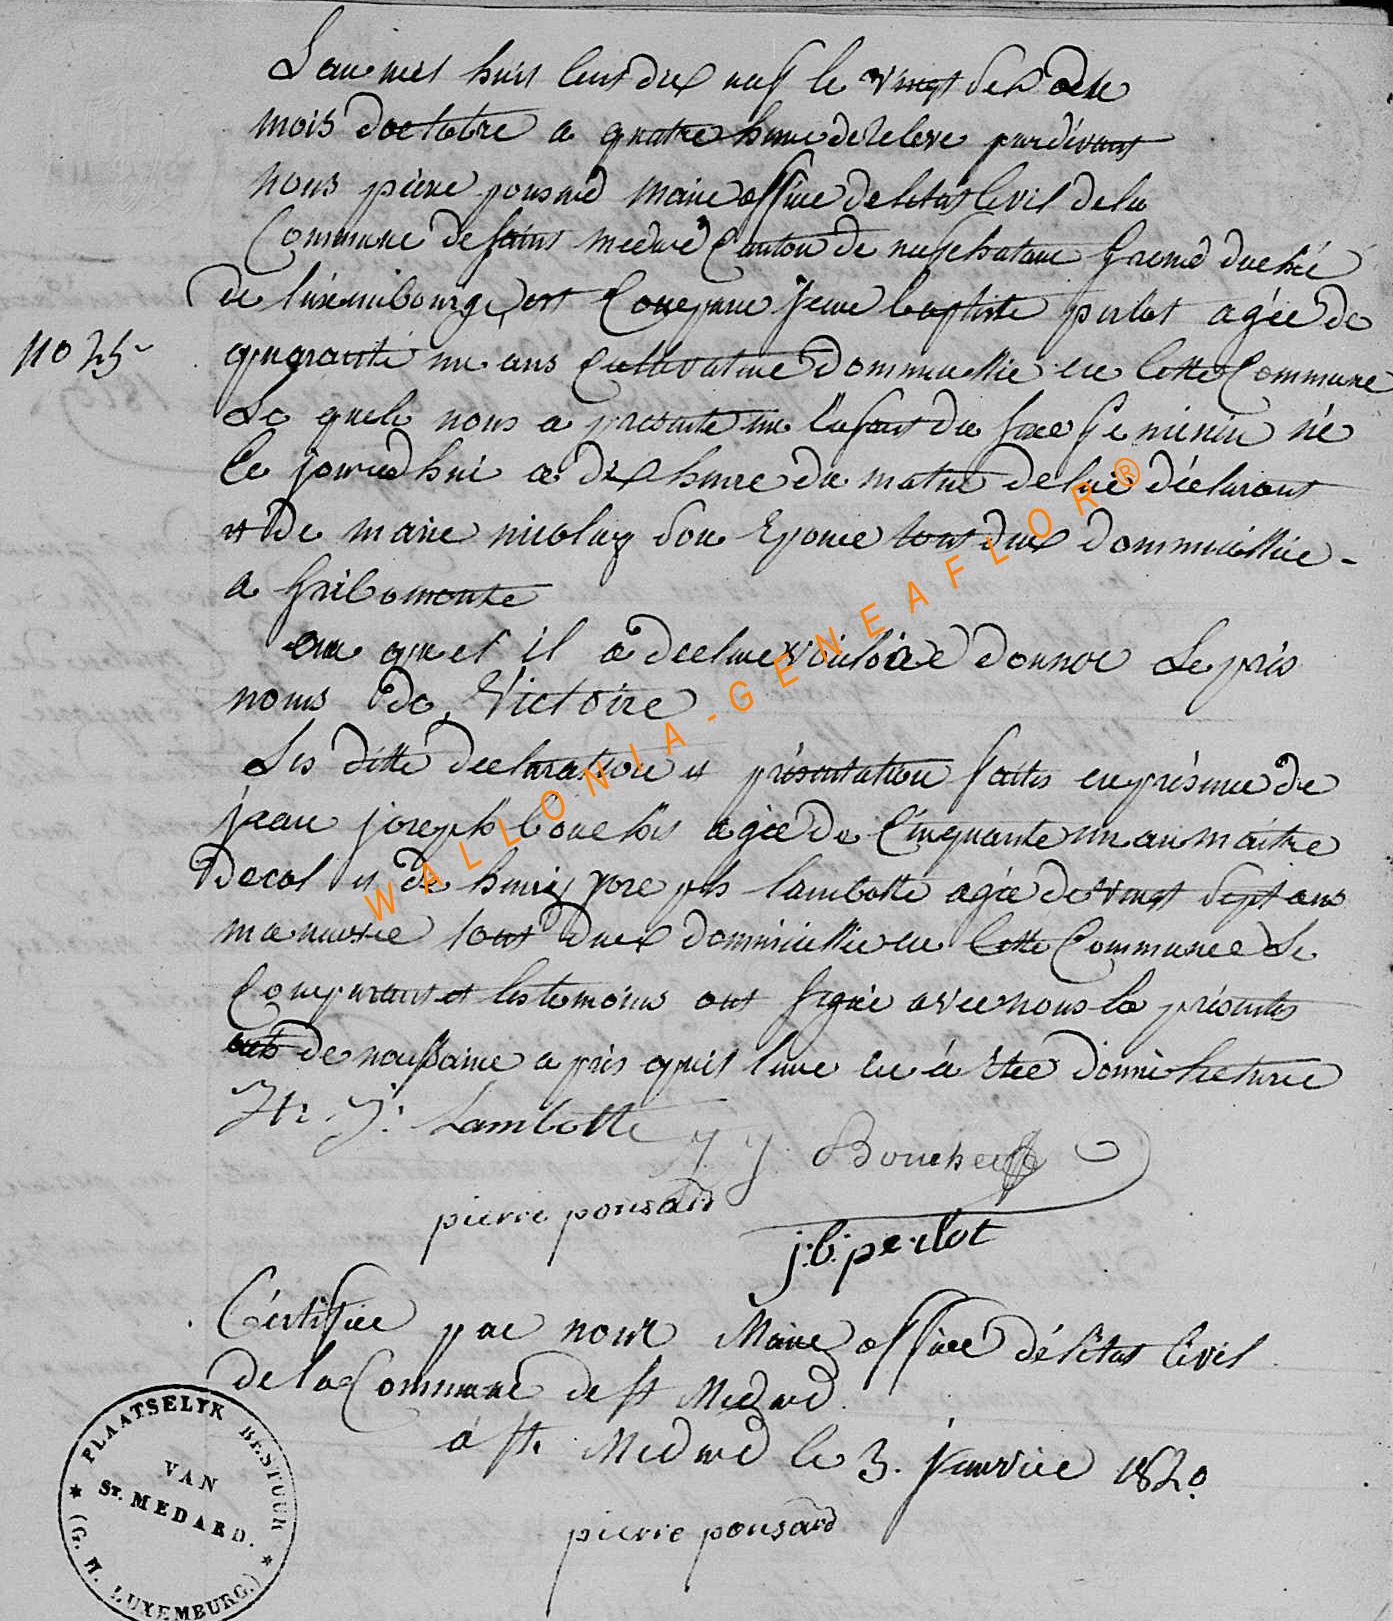 Lan mil huit cent dix neuf le vingt sept de
mois doctobre a quatre heure de releve pardévant
nous piere ponsard maire officie de letat Civil de la
Commune de saint medard Canton de neufchatau Grand duché
de luxembourge, est Comparu jean baptiste perlot agée de
no 25
quarante un ans Cultivature dommicillie en cette Commune
Le quele nous a presente un enfant du sexe feminin né
ce jourdhui a dix heure du matin de lui déclarant
et de marie nicolay son Epouse tout deux dommicillie -
a Gribomonte
au quel il a declare vouloire donner Le pré
noms de Victoire
Les ditte declaration et présentation faites en présence de
jean joseph bouchés agée de Cinquante un an maitre
decol et de henri joseph lambotte agée de vingt sept ans
maneuvre tout deux dommicillie en cette Commune Le
Comparant et les temoins ont signé avec nous la présente
acte de naissance après quil leure en a étée donné lecture
H. J. Lambotte J J Bouchez
pierre ponsard
j.b. perlot
Certifiée par nous Maire officie dé létat Civil
de la Commune de st Medard
á st. Medard le 3. janvie 1820.
pierre ponsard
PLAATSELYK BESTUUR
VAN
ST. MEDARD.
(G. H. LUXEMBURG.)
WALLONIA-GENEAFLOR®